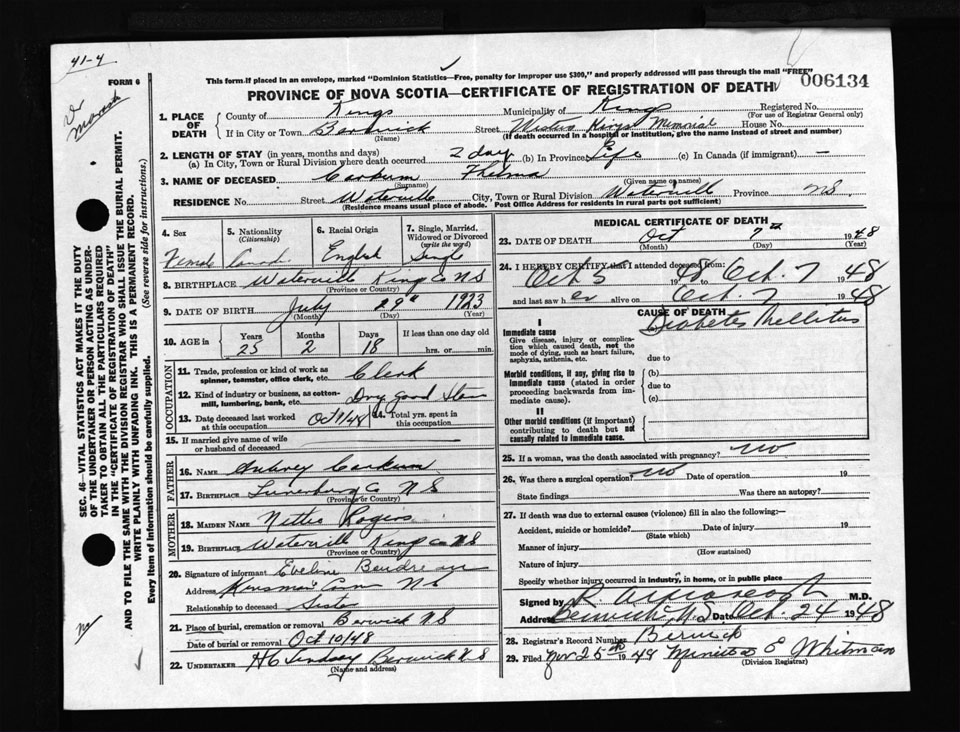 41-4
FORM 6
This form if placed in an envelope, marked "Dominion Statistics—Free, penalty for improper use $300," and properly addressed will pass through the mail "FREE"
006134
PROVINCE OF NOVA SCOTIA—CERTIFICATE OF REGISTRATION OF DEATH
1. PLACE OF DEATH
County of Kings Municipality of Kings Registered No.
(For use of Registrar General only)
If in City or Town Berwick Street Western Kings Memorial House No.
(Name) (If death occurred in a hospital or institution, give the name instead of street and number)
2. LENGTH OF STAY (in years, months and days)
(a) In City, Town or Rural Division where death occurred 2 day (b) In Province Life (c) In Canada (if immigrant) —
3. NAME OF DECEASED Corkum Thelma
(Surname) (Given name or names)
RESIDENCE No. Street Waterville City, Town or Rural Division Waterville Province NS
(Residence means usual place of abode. Post Office Address for residents in rural parts not sufficient)
4. Sex Female
5. Nationality (Citizenship) Canad.
6. Racial Origin English
7. Single, Married, Widowed or Divorced (write the word) Single
8. BIRTHPLACE Waterville King Co NS
(Province or Country)
9. DATE OF BIRTH July 29th 1923
(Month) (Day) (Year)
10. AGE in Years Months Days If less than one day old
25 2 18 hrs. or min.
OCCUPATION
11. Trade, profession or kind of work as spinner, teamster, office clerk, etc. Clerk
12. Kind of industry or business, as cotton-mill, lumbering, bank, etc. Dry Good Store
13. Date deceased last worked at this occupation Oct 1/48
14. Total yrs. spent in this occupation
15. If married give name of wife or husband of deceased
FATHER
16. NAME Aubrey Corkum
17. BIRTHPLACE Lunenburg Co NS
(Province or Country)
MOTHER
18. MAIDEN NAME Nettie Rogers
19. BIRTHPLACE Waterville King Co NS
(Province or Country)
20. Signature of informant Eveline Boudreau
Address Kinsman Corn NS
Relationship to deceased Sister
21. Place of burial, cremation or removal Berwick NS
Date of burial or removal Oct 10/48
22. UNDERTAKER H C Lindsay Berwick NS
(Name and address)
MEDICAL CERTIFICATE OF DEATH
23. DATE OF DEATH Oct 7th 1948
(Month) (Day) (Year)
24. I HEREBY CERTIFY that I attended deceased from:
Oct 5 1948 Oct. 7 1948
and last saw her alive on Oct. 7 1948
CAUSE OF DEATH
I
Immediate cause
Give disease, injury or complication which caused death, not the mode of dying, such as heart failure, asphyxia, asthenia, etc.
Diabetes Mellitus
due to
Morbid conditions, if any, giving rise to immediate cause (stated in order proceeding backwards from immediate cause).
(b)
due to
(c)
II
Other morbid conditions (if important) contributing to death but not causally related to immediate cause.
25. If a woman, was the death associated with pregnancy? no
26. Was there a surgical operation? no Date of operation 19
State findings Was there an autopsy?
27. If death was due to external causes (violence) fill in also the following:—
Accident, suicide or homicide? Date of injury 19
(State which)
Manner of injury
(How sustained)
Nature of injury
Specify whether injury occurred in industry, in home, or in public place
Signed by R. M.D.
Address Berwick, N.S. Date Oct. 24 1948
28. Registrar's Record Number Berwick
29. Filed Nov 25th 1948 E Whitman
(Division Registrar)
SEC. 46—VITAL STATISTICS ACT MAKES IT THE DUTY
OF THE UNDERTAKER OR PERSON ACTING AS UNDER-
TAKER TO OBTAIN ALL THE PARTICULARS REQUIRED
IN THE "CERTIFICATE OF REGISTRATION OF DEATH"
AND TO FILE THE SAME WITH THE DIVISION REGISTRAR WHO SHALL ISSUE THE BURIAL PERMIT.
WRITE PLAINLY WITH UNFADING INK. THIS IS A PERMANENT RECORD.
Every item of Information should be carefully supplied. (See reverse side for instructions.)